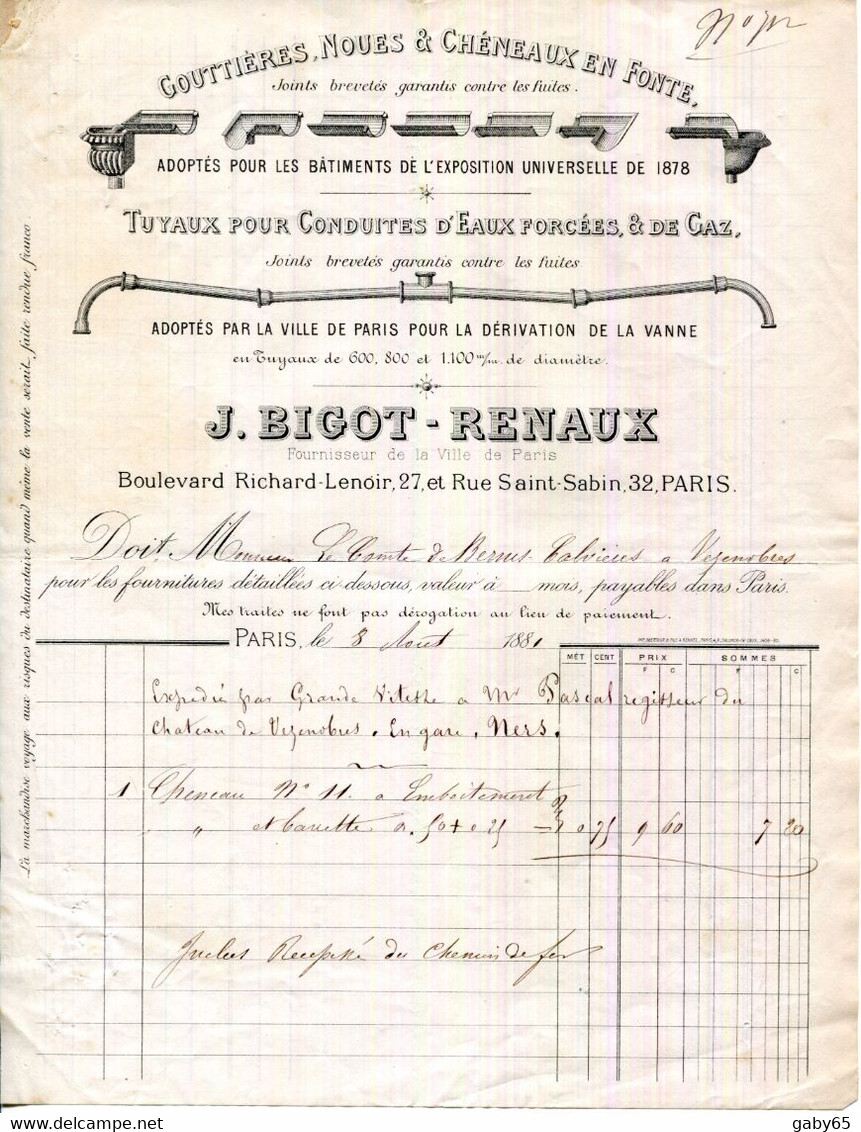 GOUTTIÈRES, NOUES & CHÉNEAUX EN FONTE,
Joints brevetés garantis contre les fuites.
ADOPTÉS POUR LES BÂTIMENTS DE L'EXPOSITION UNIVERSELLE DE 1878
TUYAUX POUR CONDUITES D'EAUX FORCÉES, & DE GAZ,
Joints brevetés garantis contre les fuites
ADOPTÉS PAR LA VILLE DE PARIS POUR LA DÉRIVATION DE LA VANNE
en Tuyaux de 600, 800 et 1.100 m/m. de diamètre.
J. BIGOT - RENAUX
Fournisseur de la Ville de Paris
Boulevard Richard-Lenoir, 27, et Rue Saint-Sabin, 32, PARIS.
Doit Monsieur Le Comte de Bernis Calvieres a Vezenobres
pour les fournitures détaillées ci-dessous, valeur à mois, payables dans Paris.
Mes traites ne font pas dérogation au lieu de paiement.
PARIS, le 8 Aout 1881
MÈT CENT PRIX SOMMES
F C F C
Expedié par Grande Vitesse a Mr Pascal regisseur du
Chateau de Vezenobres. En gare, Ners.
1 Cheneau No 11. a Emboitement
" et Cuvette 0.50 + 0.25 0 75 9 60 7 20
Inclus Recepissé du Chemin de fer
La marchandise voyage aux risques du destinataire quand même la vente serait faite rendue franco.
gaby65